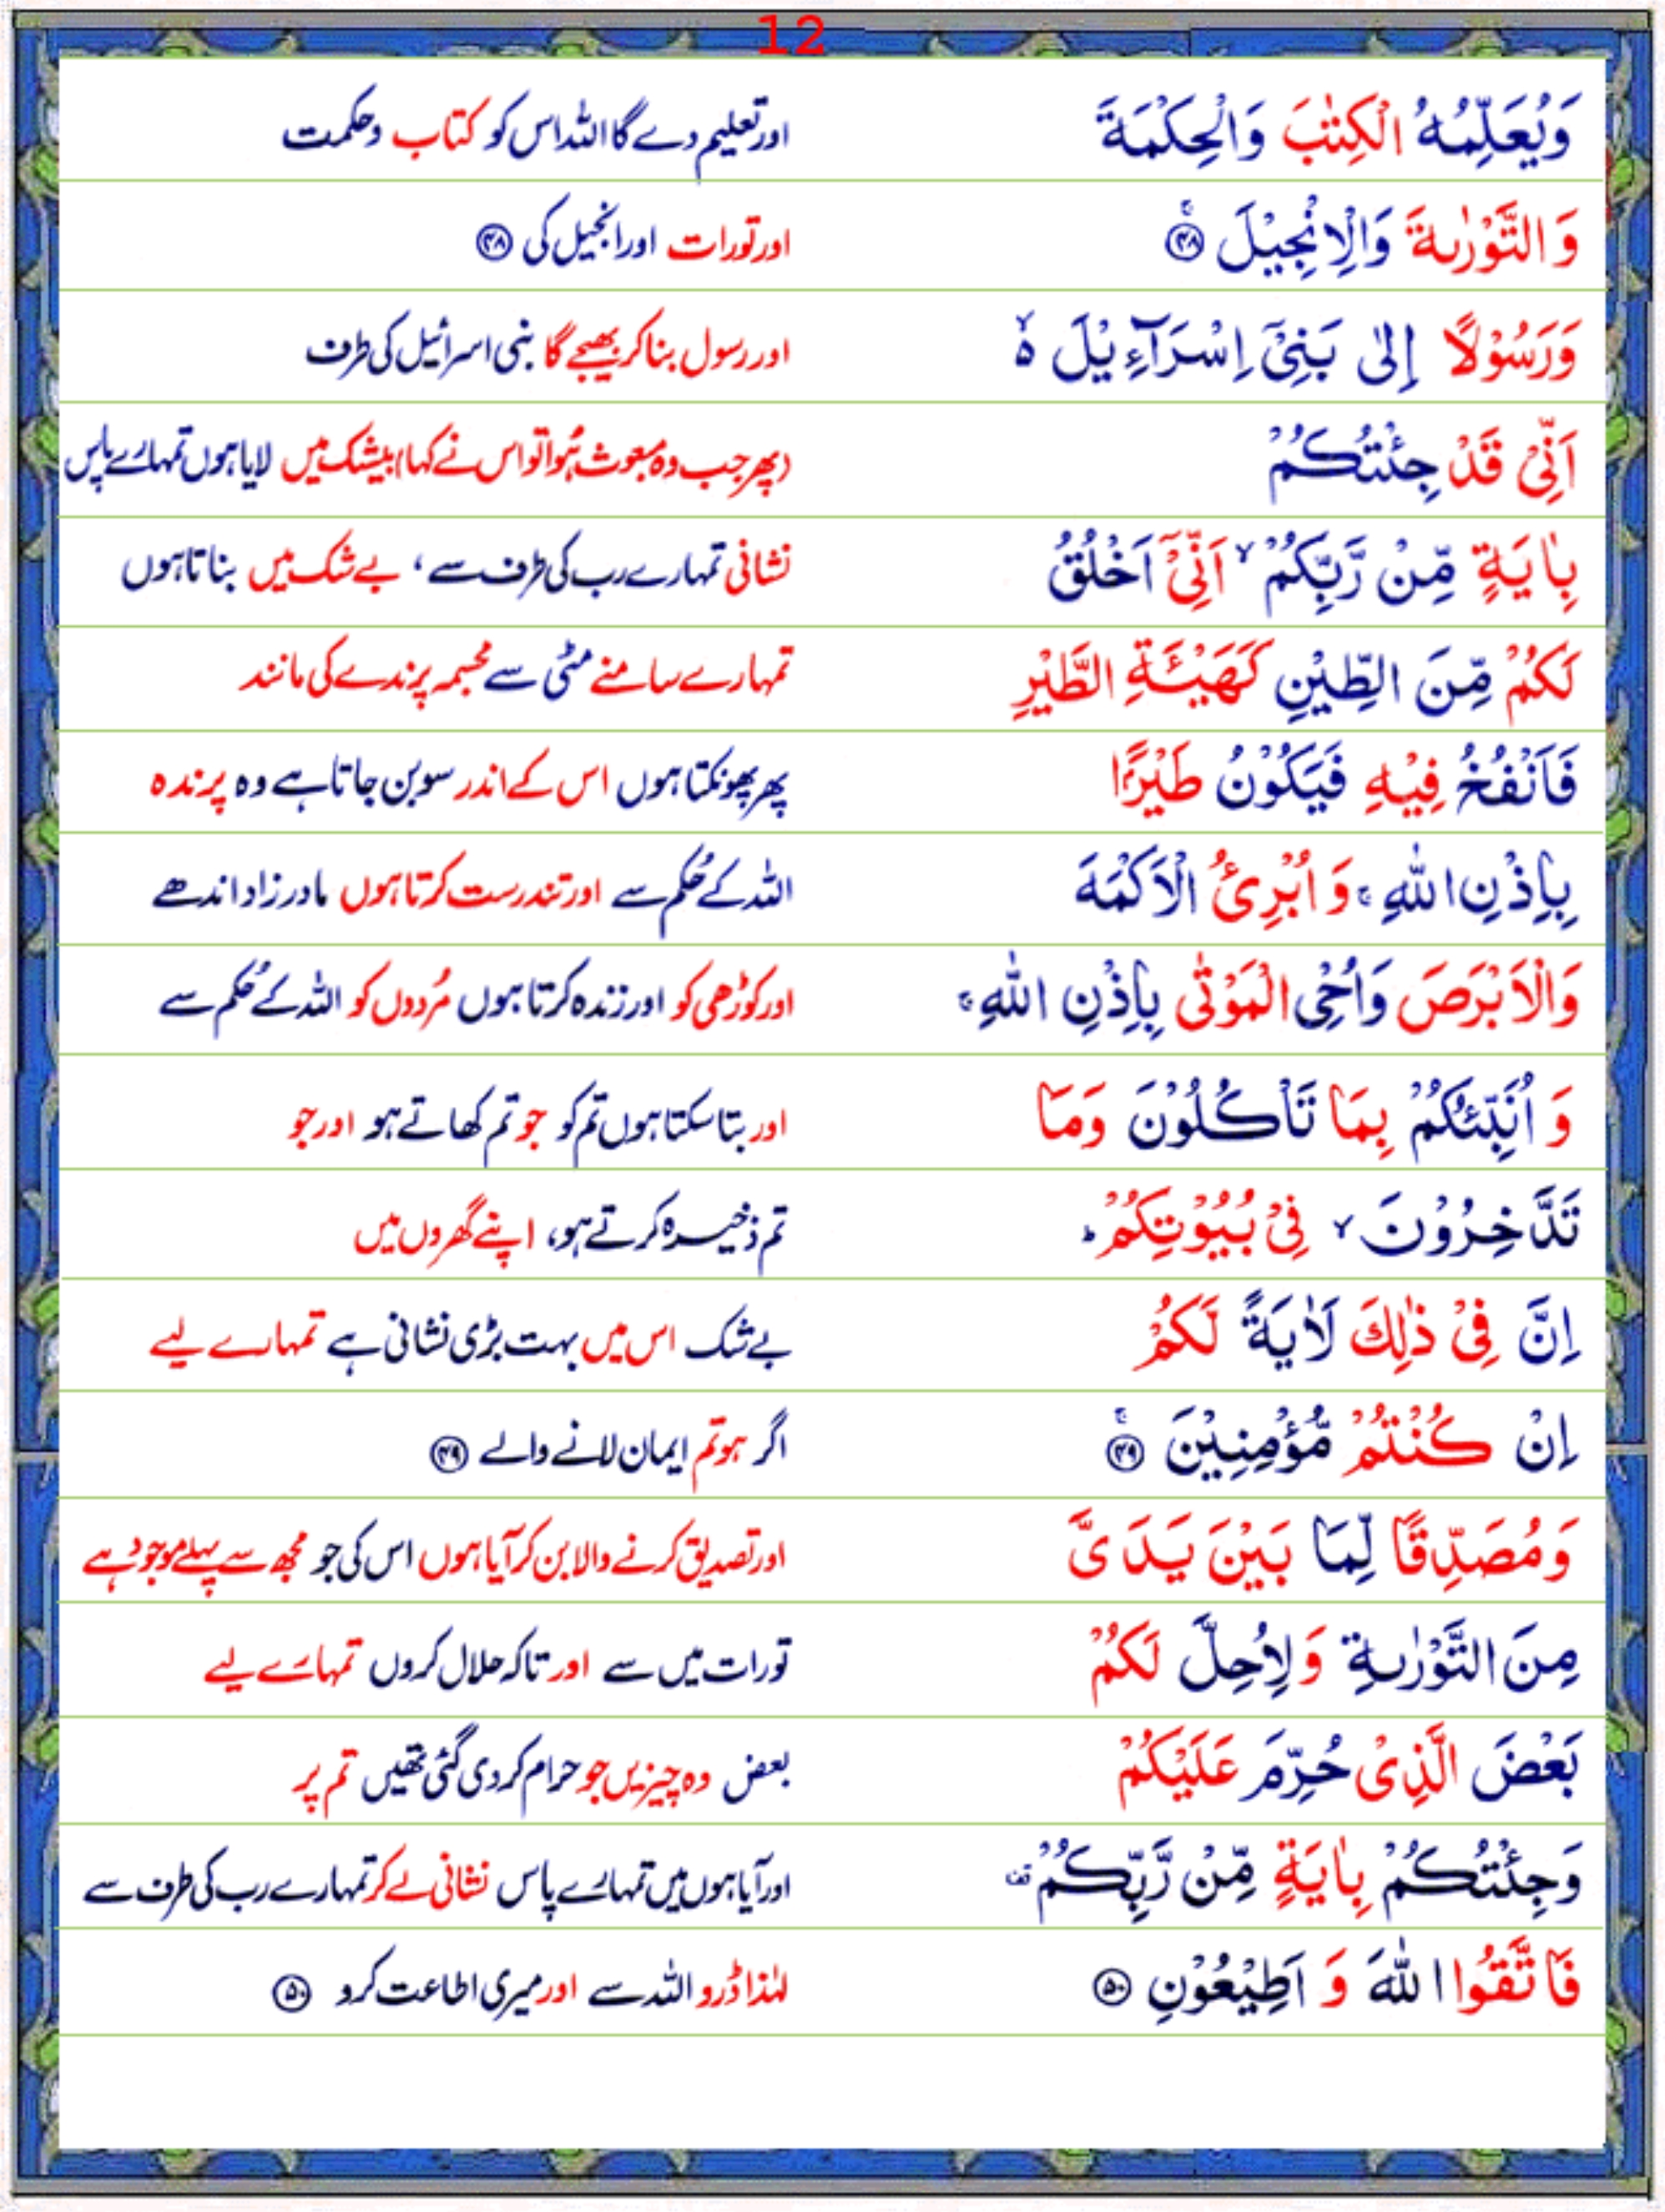 12
وَيُعَلِّمُهُ الْكِتٰبَ وَالْحِكْمَةَ اور تعلیم دے گا اللہ اس کو کتاب وحکمت
وَالتَّوْرٰىةَ وَالْاِنْجِيْلَ ۚ ﴿۴۸﴾ اور تورات اور انجیل کی ﴿۴۸﴾
وَرَسُوْلًا اِلٰى بَنِيْٓ اِسْرَآءِيْلَ ۙ اور رسول بنا کر بھیجے گا بنی اسرائیل کی طرف
اَنِّيْ قَدْ جِئْتُكُمْ (پھر جب وہ مبعوث ہُوا تو اس نے کہا) بیشک میں لایا ہوں تمہارے پاس
بِاٰيَةٍ مِّنْ رَّبِّكُمْ ۙ اَنِّيْٓ اَخْلُقُ نشانی تمہارے رب کی طرف سے ، بے شک میں بناتا ہوں
لَكُمْ مِّنَ الطِّيْنِ كَهَيْـَٔةِ الطَّيْرِ تمہارے سامنے مٹی سے مجسمہ پرندے کی مانند
فَاَنْفُخُ فِيْهِ فَيَكُوْنُ طَيْرًۢا پھر پھونکتا ہوں اس کے اندر سو بن جاتا ہے وہ پرندہ
بِاِذْنِ اللّٰهِ ۚ وَاُبْرِئُ الْاَكْمَهَ اللہ کے حُکم سے اور تندرست کرتا ہوں مادر زاد اندھے
وَالْاَبْرَصَ وَاُحْيِ الْمَوْتٰى بِاِذْنِ اللّٰهِ ۚ اور کوڑھی کو اور زندہ کرتا ہوں مُردوں کو اللہ کے حُکم سے
وَاُنَبِّئُكُمْ بِمَا تَاْكُلُوْنَ وَمَا اور بتا سکتا ہوں تم کو جو تم کھاتے ہو اور جو
تَدَّخِرُوْنَ ۙ فِيْ بُيُوْتِكُمْ ؕ تم ذخیرہ کرتے ہو، اپنے گھروں میں
اِنَّ فِيْ ذٰلِكَ لَاٰيَةً لَّكُمْ بے شک اس میں بہت بڑی نشانی ہے تمہارے لیے
اِنْ كُنْتُمْ مُّؤْمِنِيْنَ ۚ ﴿۴۹﴾ اگر ہو تم ایمان لانے والے ﴿۴۹﴾
وَمُصَدِّقًا لِّمَا بَيْنَ يَدَيَّ اور تصدیق کرنے والا بن کر آیا ہوں اس کی جو مجھ سے پہلے موجود ہے
مِنَ التَّوْرٰىةِ وَلِاُحِلَّ لَكُمْ تورات میں سے اور تاکہ حلال کروں تمہارے لیے
بَعْضَ الَّذِيْ حُرِّمَ عَلَيْكُمْ بعض وہ چیزیں جو حرام کر دی گئی تھیں تم پر
وَجِئْتُكُمْ بِاٰيَةٍ مِّنْ رَّبِّكُمْ ۟ اور آیا ہوں میں تمہارے پاس نشانی لے کر تمہارے رب کی طرف سے
فَاتَّقُوا اللّٰهَ وَاَطِيْعُوْنِ ﴿۵۰﴾ لہٰذا ڈرو اللہ سے اور میری اطاعت کرو ﴿۵۰﴾